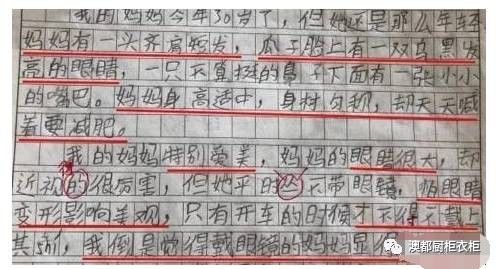 我的妈妈今年30岁了，但她还是那么年轻
妈妈有一头齐肩短发，瓜子脸上有一双乌黑发
亮的眼睛，一只不算挺的鼻子下面有一张小小
的嘴巴。妈妈身高适中，身材匀称，却天天喊
着要减肥。
我的妈妈特别爱美，妈妈的眼睛很大，却
得
近视的很厉害，但她平时从不带眼镜，怕眼睛
变形影响美观，只有开车的时候才不得不戴上
其实，我倒是觉得戴眼镜的妈妈显得
澳都厨柜衣柜